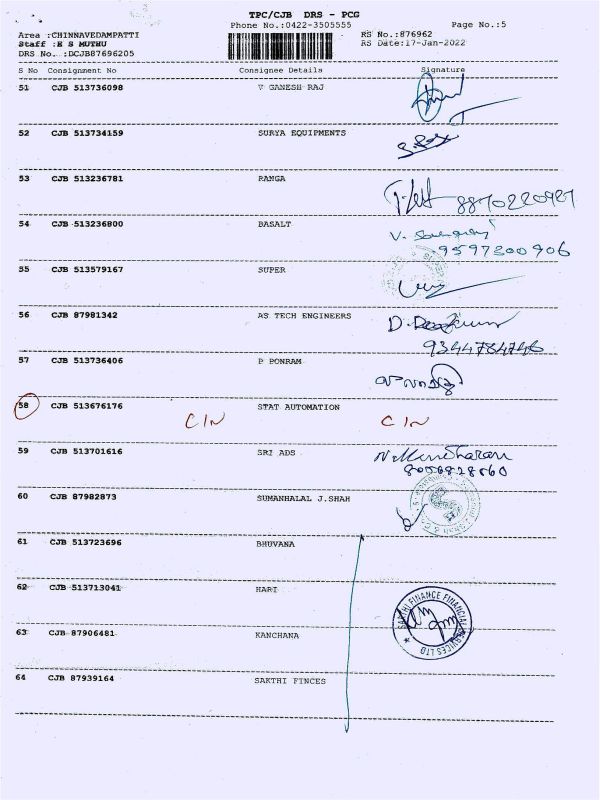 TPC/CJB DRS - PCG
Phone No.:0422-3505555
Page No.:5
Area :CHINNAVEDAMPATTI
RS No.:876962
Staff :E S MUTHU
RS Date:17-Jan-2022
DRS No. :DCJB87696205
S No Consignment No Consignee Details Signature
51 CJB 513736098 V GANESH RAJ
52 CJB 513734159 SURYA EQUIPMENTS
53 CJB 513236781 RANGA
8870220927
54 CJB 513236800 BASALT
9597300906
55 CJB 513579167 SUPER
56 CJB 87981342 AS TECH ENGINEERS
9344784746
57 CJB 513736406 P PONRAM
58 CJB 513676176 STAT AUTOMATION
CIN CIN
59 CJB 513701616 SRI ADS
60 CJB 87982873 SUMANHALAL J.SHAH
61 CJB 513723696 BHUVANA
62 CJB 513713041 HARI
SAKTHI FINANCE FINANCIAL SERVICES LTD
63 CJB 87906481 KANCHANA
64 CJB 87939164 SAKTHI FINCES